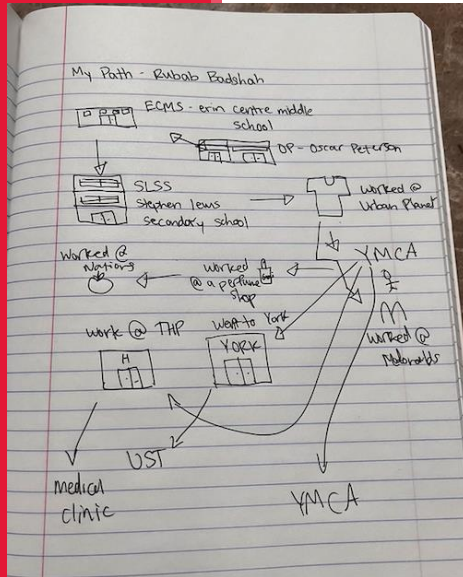 My Path - Rubab Badshah
ECMS - erin centre middle
school
OP - Oscar Peterson
SLSS
Stephen lewis
secondary school
worked @
Urban Planet
YMCA
worked
@ a perfume
shop
Worked @
Nations
worked @
Mcdonalds
work @ THP
H
Went to York
YORK
UST
medical
clinic
YMCA